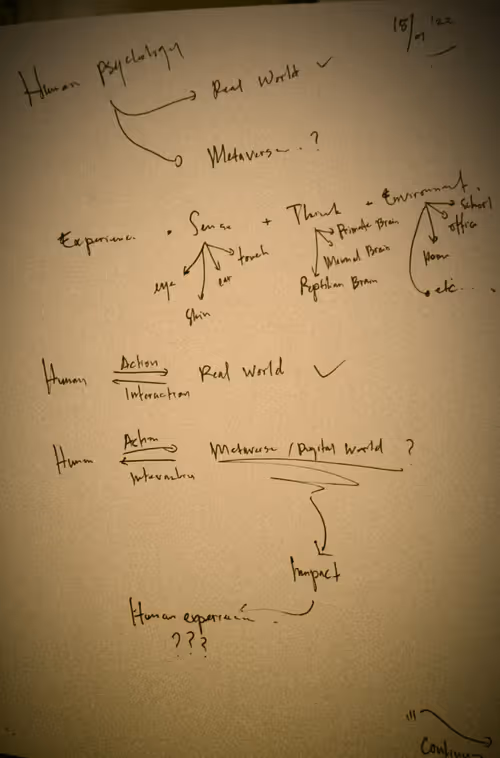 15/
'22
Human psychology
Real World ✓
Metaverse . ?
Experience . Sense + Think + Environment.
eye
skin
ear
touch
Private Brain
Mammal Brain
Reptilian Brain
School
office
Home
etc...
Human Action Interaction Real World ✓
Human Action Interaction Metaverse / Digital World ?
Impact
Human experience .
? ? ?